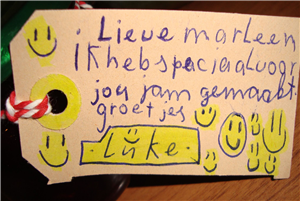 Lieve marleen
Ik heb spaciaal voor
jou jam gemaakt.
groetjes
Luke.